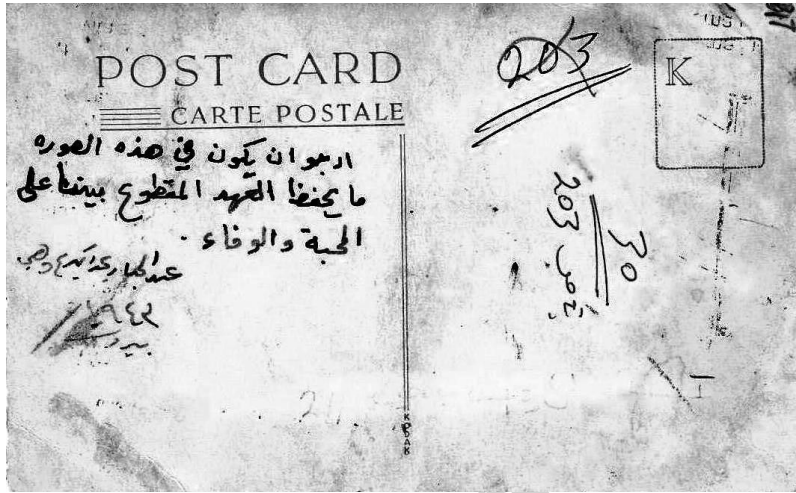 POST CARD
CARTE POSTALE
ارجو ان يكون في هذه الصوره
ما يحفظ العهد المقطوع بيننا على
المحبة والوفاء .
عبد الجبار
١٩٤٣
بيروت
203
K
30
203
KODAK